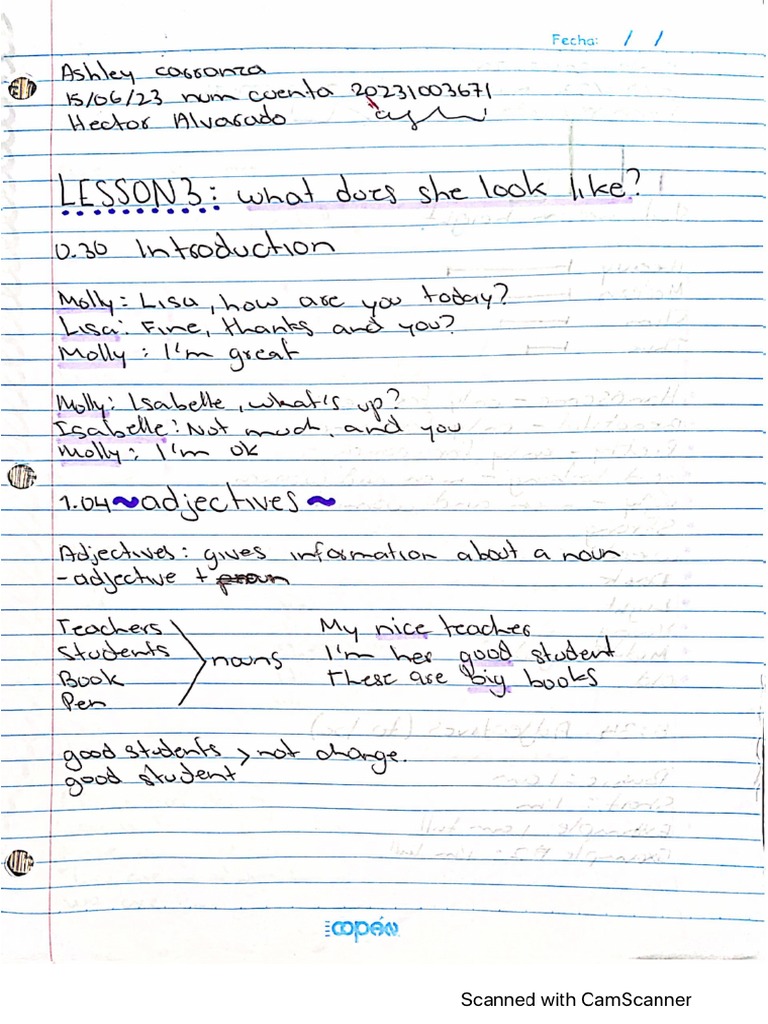 Fecha: / /
Ashley Carranza
15/06/23 num cuenta 20231003671
Hector Alvarado
LESSON 3: what does she look like?
0.30 Introduction
Molly: Lisa, how are you today?
Lisa: Fine, thanks and you?
Molly: I'm great
Molly: Isabelle, what's up?
Isabelle: Not much, and you
Molly: I'm ok
1.04 ~adjectives~
Adjectives: gives information about a noun
- adjective + noun
Teachers My nice teacher
Students I'm her good student
nouns
Book These are big books
Pen
good students > not change.
good student
copán
Scanned with CamScanner